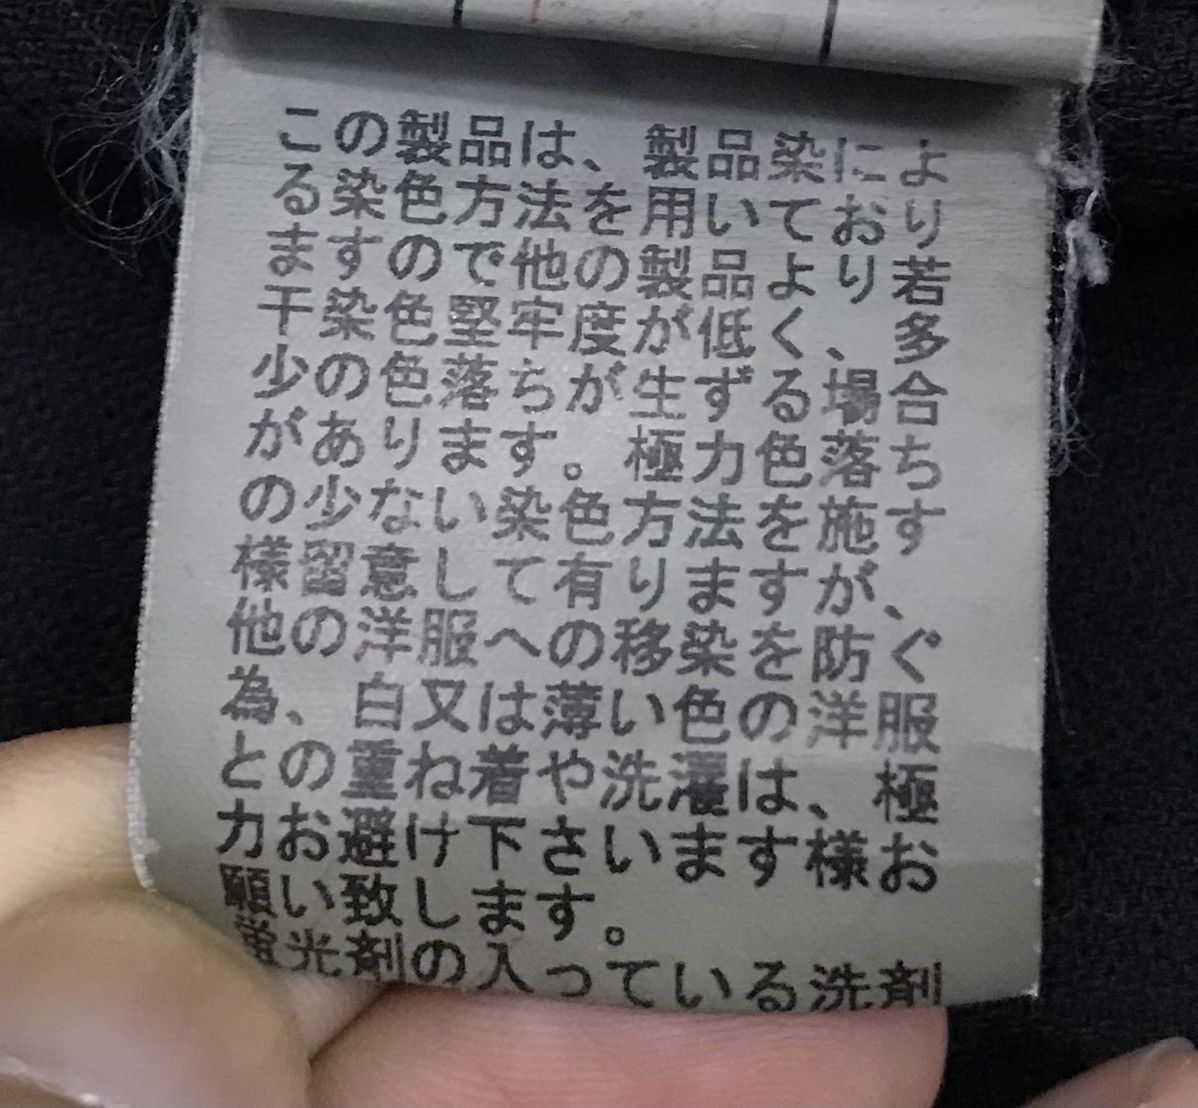 この製品は、製品染によ
る染色方法を用いており
ますので他の製品より若
干染色堅牢度が低く、多
少の色落ちが生ずる場合
があります。極力色落ち
の少ない染色方法を施す
様留意して有りますが、
他の洋服への移染を防ぐ
為、白又は薄い色の洋服
との重ね着や洗濯は、極
力お避け下さいます様お
願い致します。
蛍光剤の入っている洗剤